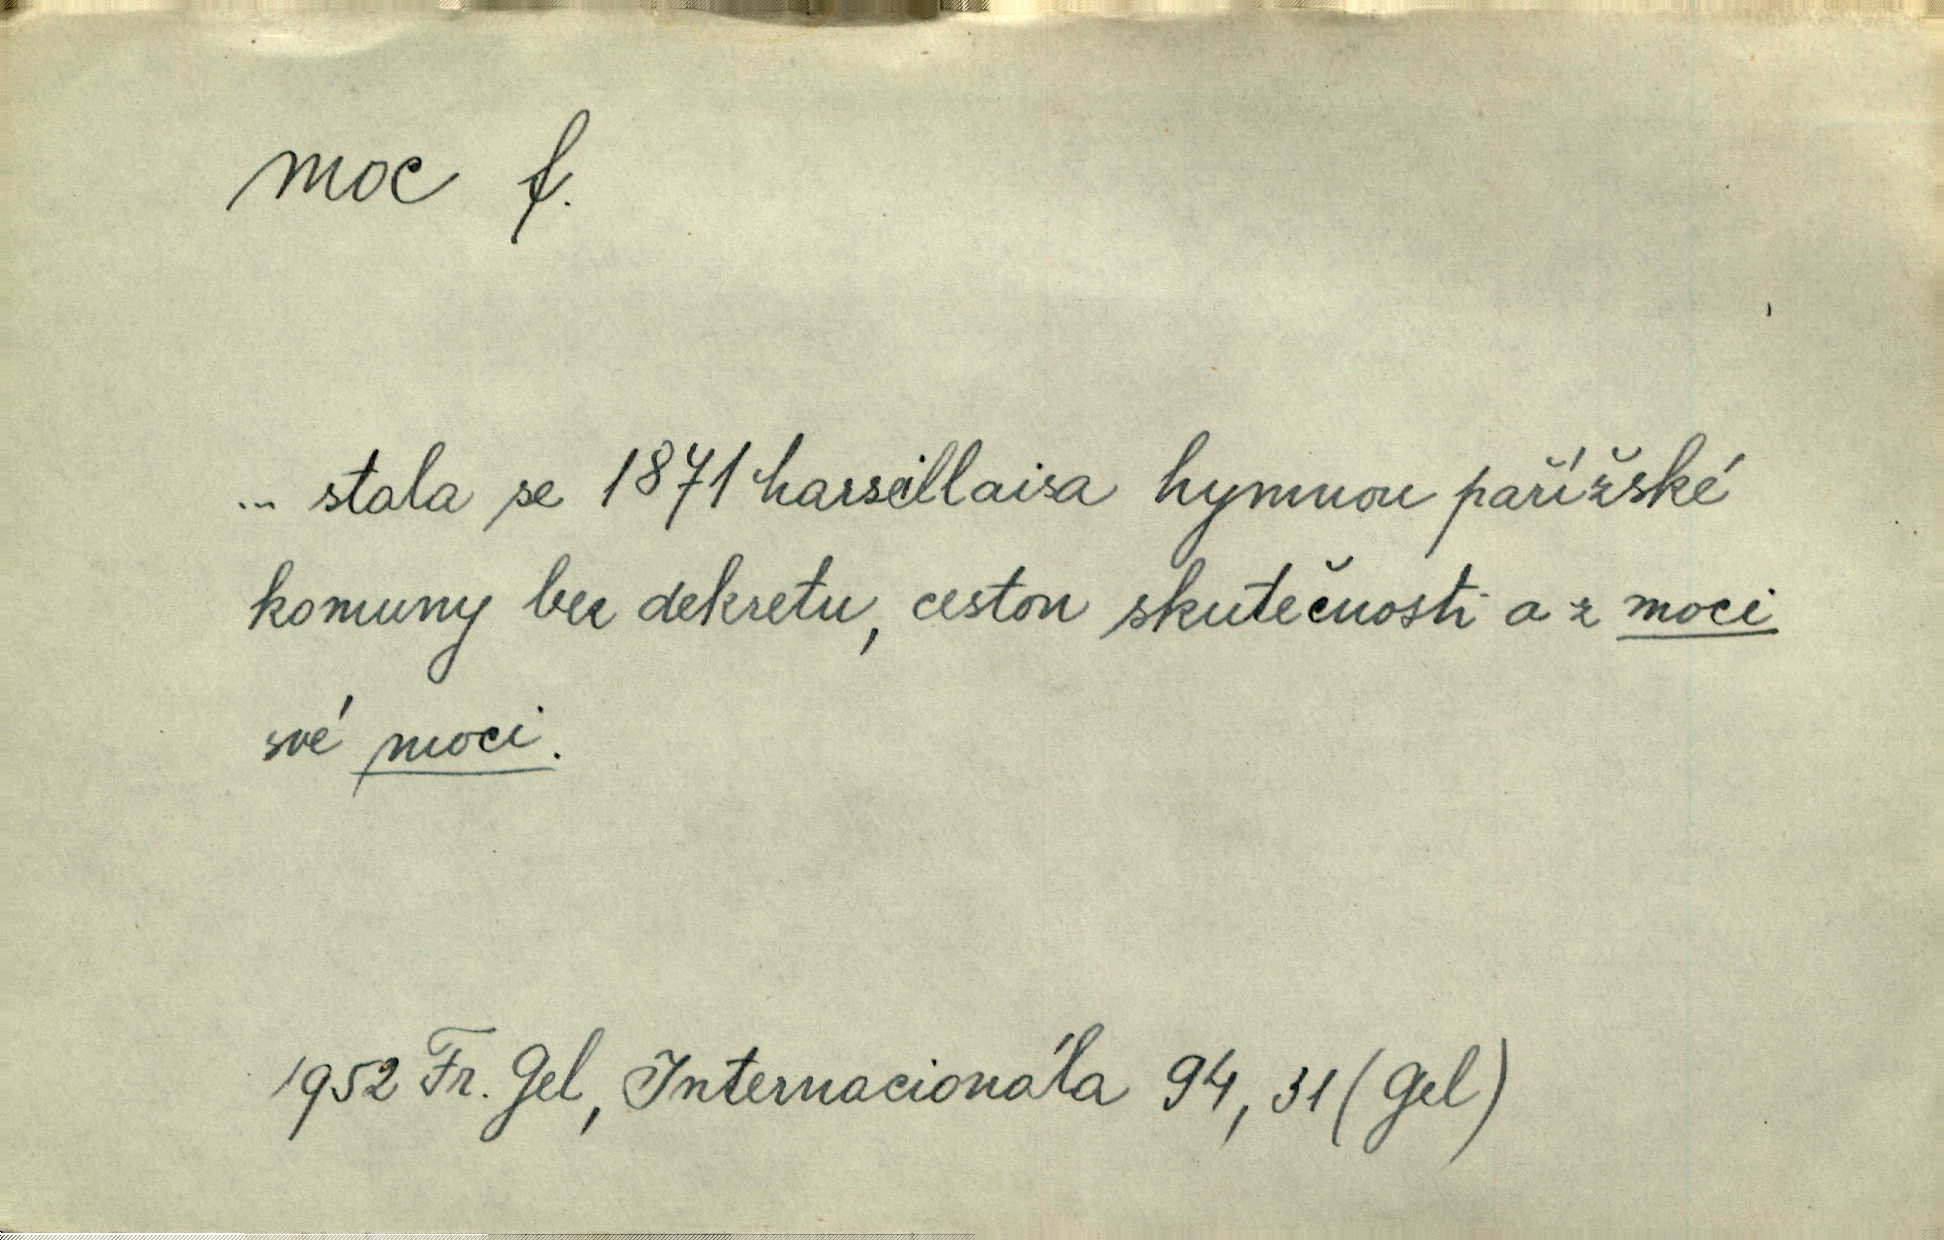 moc f.
... stala se 1871 Marseillaisa hymnou pařížské
komuny bez dekretu, cestou skutečnosti a z moci
své moci.
1952 Fr. Gel, Internacionála 94, 31 (Gel)